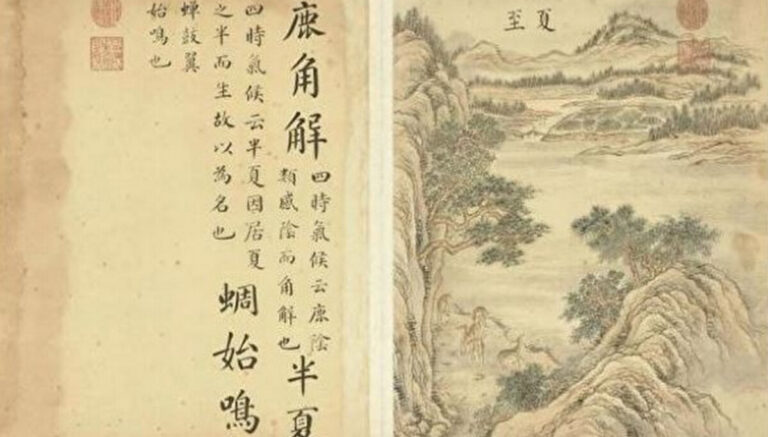 夏至
鹿角解
四時氣候云鹿陰
類感陰而角解也
半夏
四時氣候云半夏因居夏
之半而生故以為名也
蜩始鳴
蟬鼓翼
始鳴也